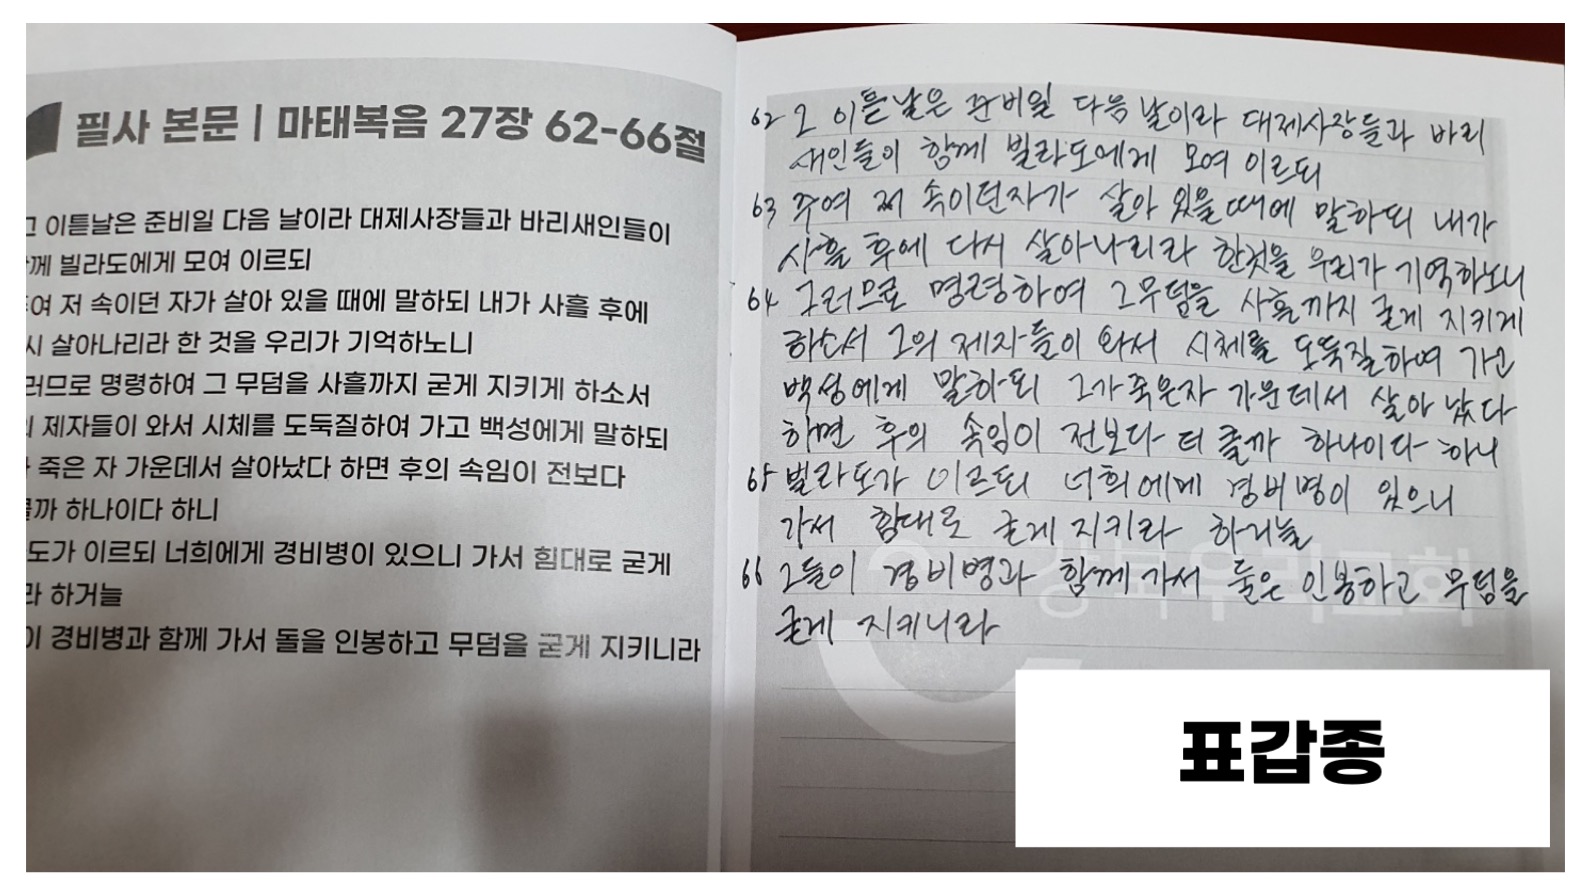 필사 본문 | 마태복음 27장 62-66절
그 이튿날은 준비일 다음 날이라 대제사장들과 바리새인들이
께 빌라도에게 모여 이르되
여 저 속이던 자가 살아 있을 때에 말하되 내가 사흘 후에
시 살아나리라 한 것을 우리가 기억하노니
러므로 명령하여 그 무덤을 사흘까지 굳게 지키게 하소서
제자들이 와서 시체를 도둑질하여 가고 백성에게 말하되
죽은 자 가운데서 살아났다 하면 후의 속임이 전보다
까 하나이다 하니
도가 이르되 너희에게 경비병이 있으니 가서 힘대로 굳게
라 하거늘
이 경비병과 함께 가서 돌을 인봉하고 무덤을 굳게 지키니라
62 그 이튿날은 준비일 다음 날이라 대제사장들과 바리
새인들이 함께 빌라도에게 모여 이르되
63 주여 저 속이던자가 살아 있을 때에 말하되 내가
사흘 후에 다시 살아나리라 한것을 우리가 기억하노니
64 그러므로 명령하여 그무덤을 사흘까지 굳게 지키게
하소서 그의 제자들이 와서 시체를 도둑질하여 가고
백성에게 말하되 그가 죽은자 가운데서 살아 났다
하면 후의 속임이 전보다 더 클까 하나이다 하니
65 빌라도가 이르되 너희에게 경비병이 있으니
가서 힘대로 굳게 지키라 하거늘
66 그들이 경비병과 함께 가서 돌은 인봉하고 무덤을
굳게 지키니라
강북우리교회
표갑종